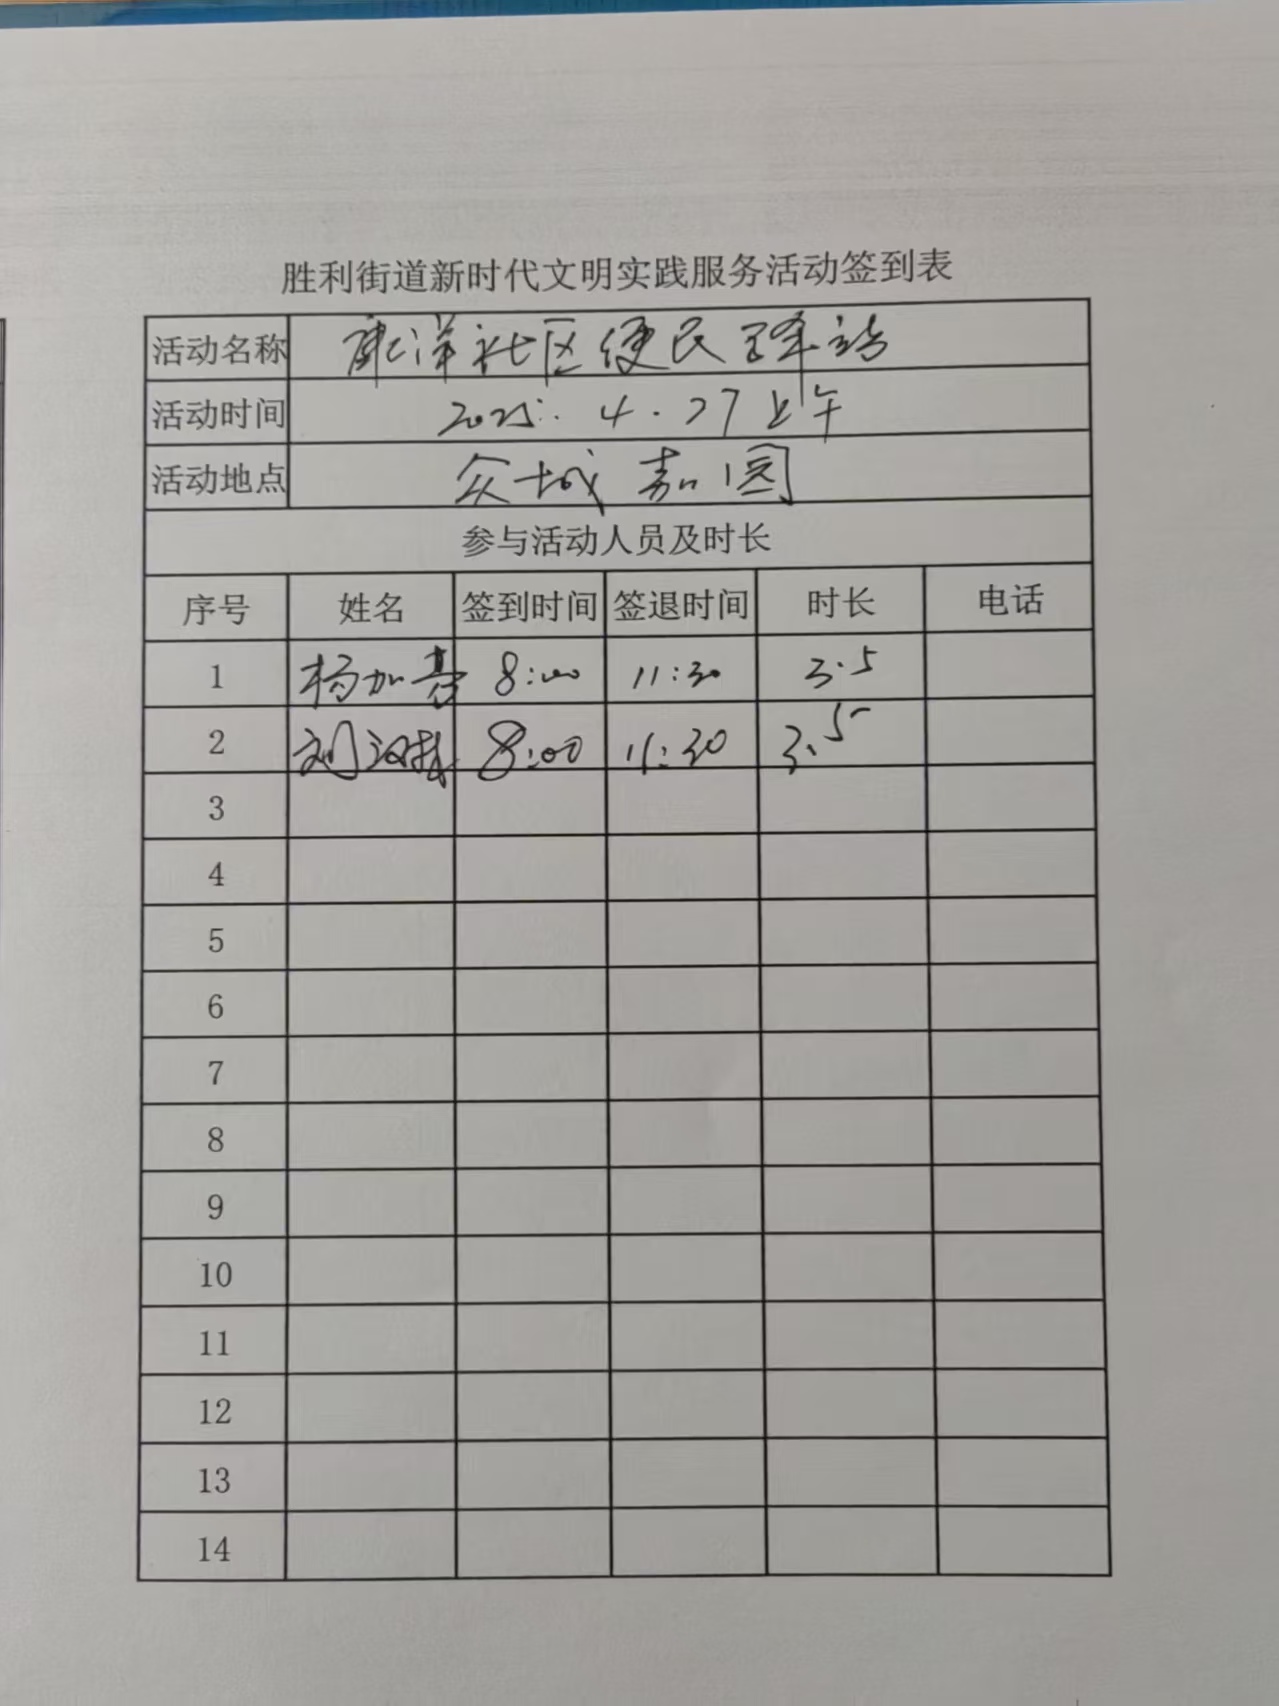 胜利街道新时代文明实践服务活动签到表
活动名称 康洋社区便民驿站
活动时间 2025. 4. 27 上午
活动地点 众城嘉园
参与活动人员及时长
序号 姓名 签到时间 签退时间 时长 电话
1 杨加 8:00 11:30 3.5
2 刘汉 8:00 11:30 3.5
3
4
5
6
7
8
9
10
11
12
13
14